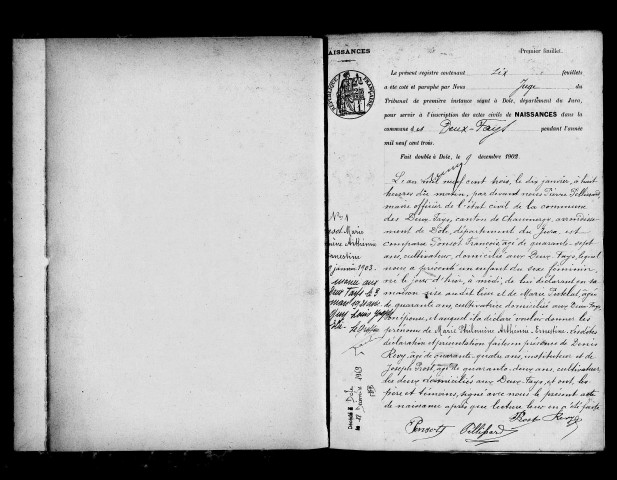 NAISSANCES
Premier feuillet.
Le présent registre contenant Six feuillets
a été coté et paraphé par Nous Juge du
Tribunal de première instance séant à Dole, département du Jura,
pour servir à l'inscription des actes civils de NAISSANCES dans la
commune des Deux-Fays pendant l'année
mil neuf cent trois.
Fait double à Dole, le 9 décembre 1902.
RÉPUBLIQUE FRANÇAISE
L'an mil neuf cent trois, le dix janvier, à huit
heures du matin, par devant nous Pierre
maire officier de l'état civil de la commune
des Deux-Fays, canton de Chaumergy, arrondisse-
ment de Dole, département du Jura, est
comparu Ponsot François, âgé de quarante-sept
ans, cultivateur, domicilié aux Deux-Fays, lequel
nous a présenté un enfant du sexe féminin,
né le jour d'hier, à midi, de lui déclarant en sa
maison sise audit lieu et de Marie
de quarante ans, cultivatrice domiciliée aux Deux-Fays
son épouse, et auquel il a déclaré vouloir donner les
prénoms de Marie Philomène Arthémie Ernestine. Lesdites
déclaration et présentation faites en présence de Denis
Revy, âgé de quarante-quatre ans, instituteur et de
Joseph Prost, âgé de quarante-deux ans, cultivateur
les deux domiciliés aux Deux-Fays, et ont, les
père et témoins, signé avec nous le présent acte
de naissance après que lecture leur en a été faite
Prost Revy
Ponsot
N° 1
Ponsot Marie
Ernestine
janvier 1903.
Louis
Dole
Décembre 1903